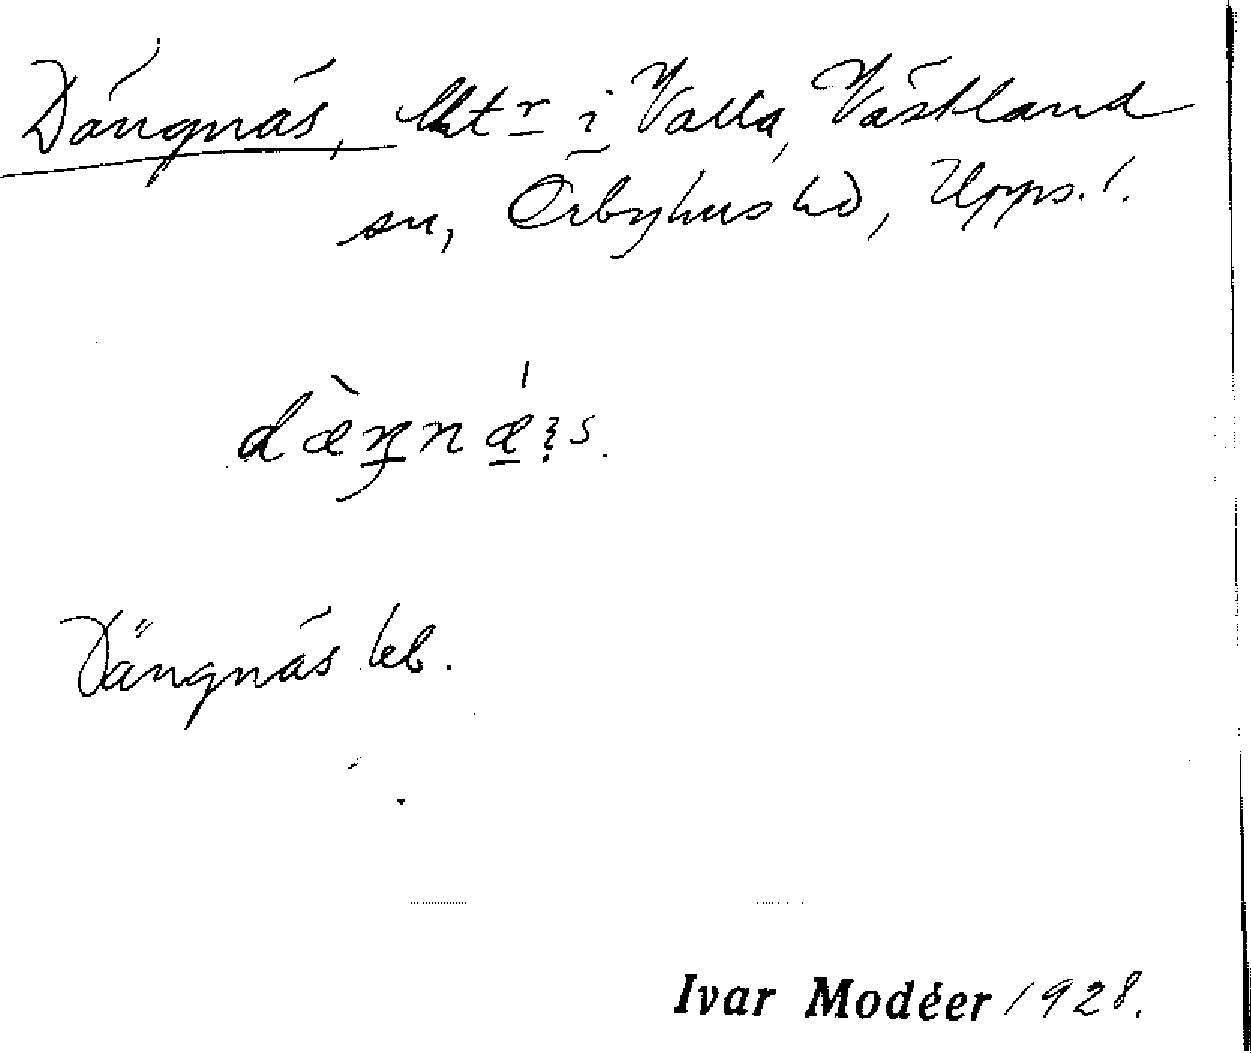 Dängnäs, lht r i Valla, Västland
sn, Örbyhus hd, Upps. l.
dæ̀ŋnǽ:s.
Dängnäs kb.
Ivar Modéer 1928.